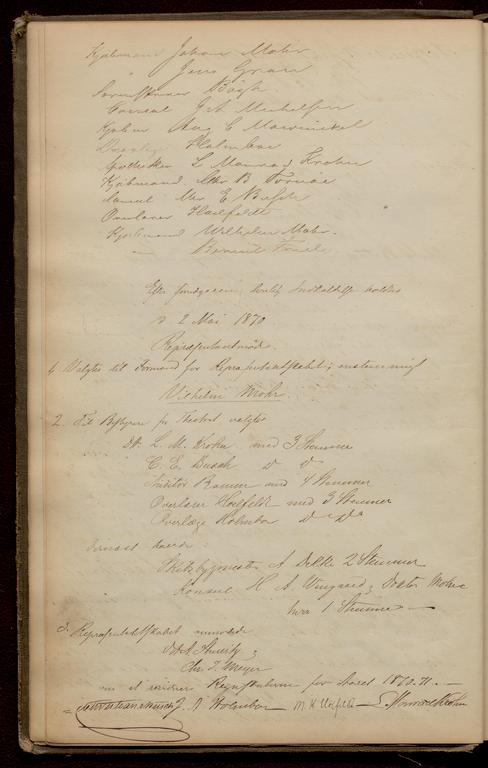 Kjøbmand Johan Mohr
" Jens Gran
Bøgh
Consul J A Michelsen
Aug C Mowinckel
Holmboe
Apotheker L Monrad Krohn
Kjøbmand Chr B Tornøe
Consul Chr E Busch
Overlærer Hoelfeldt
Kjøbmand Wilhelm Mohr.
— Berent Friele
Efter foregaaende lovlig Indkaldelse holdtes
d 2 Mai 1870
Repræsentantmøde.
1, Valgtes til Formand for Repræsentantskabet, enstemmigt
Vilhelm Mohr.
2. Til Bestyrere for Theatret valgtes
L. M. Krohn med 3 Stemmer
C. E. Busch d d
Auditør med 4 Stemmer
Overlærer Hoelfeldt med 3 Stemmer
Overlæge Holmboe d d
havde:
Skibsbygmester A Dekke 2 Stemmer
Konsul H A Doktor
hver 1 Stemme —
3. Repræsentantskabet anmodede
Chr. T. Meyer
om at revidere Regnskaberne for Aaret 1870.71. —
J Holmboe M. H Hoelfeldt L. Monrad Krohn